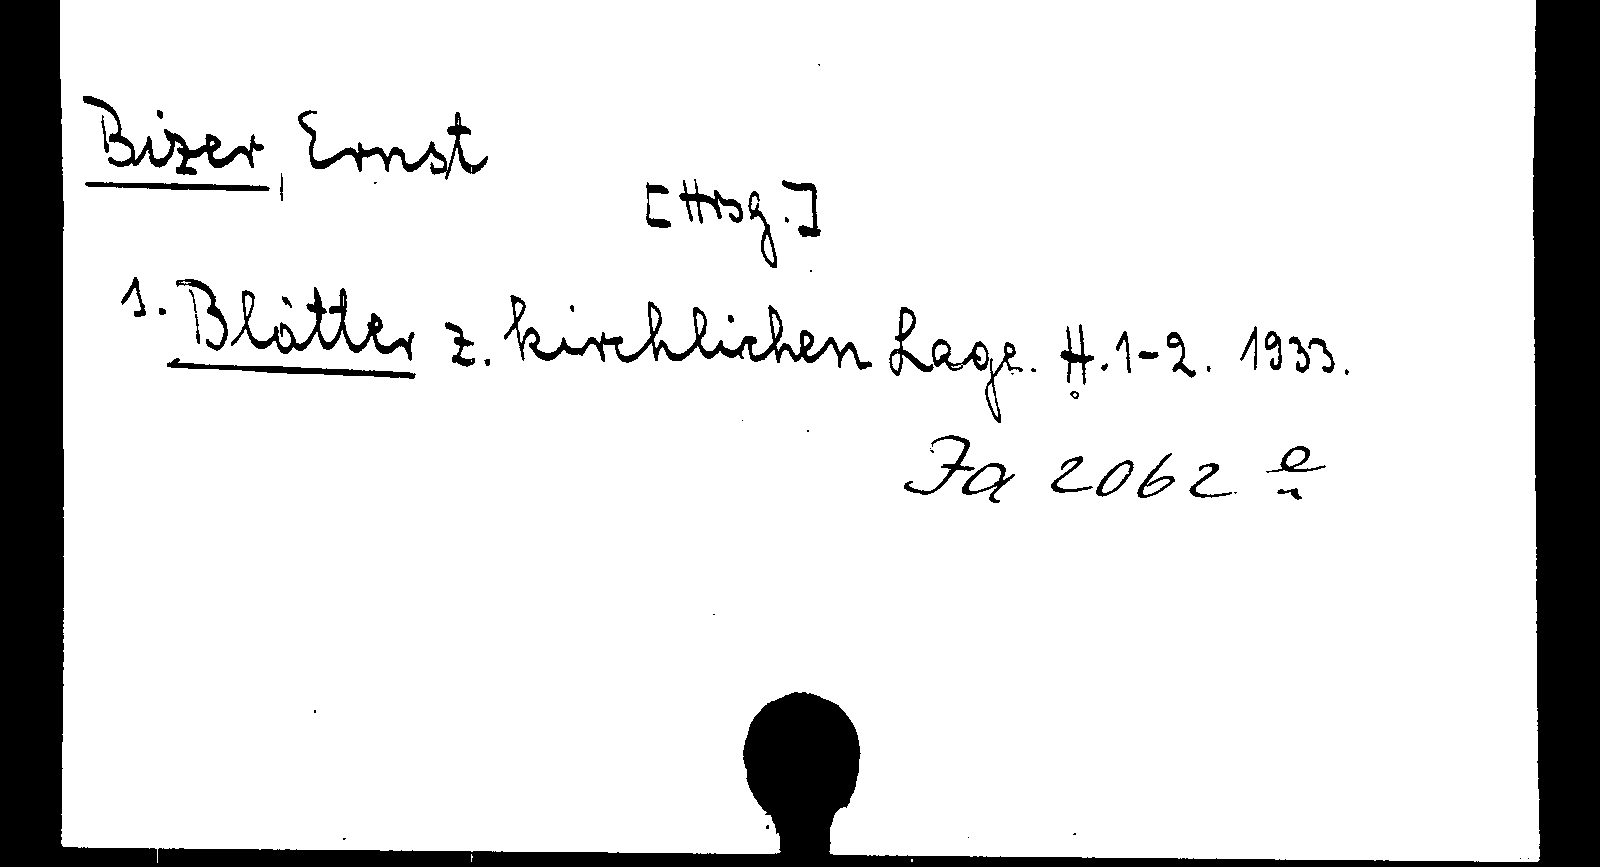 Bizer, Ernst
[Hrsg.]
1. Blätter z. kirchlichen Lage. H. 1-2. 1933.
Ja 2062 e